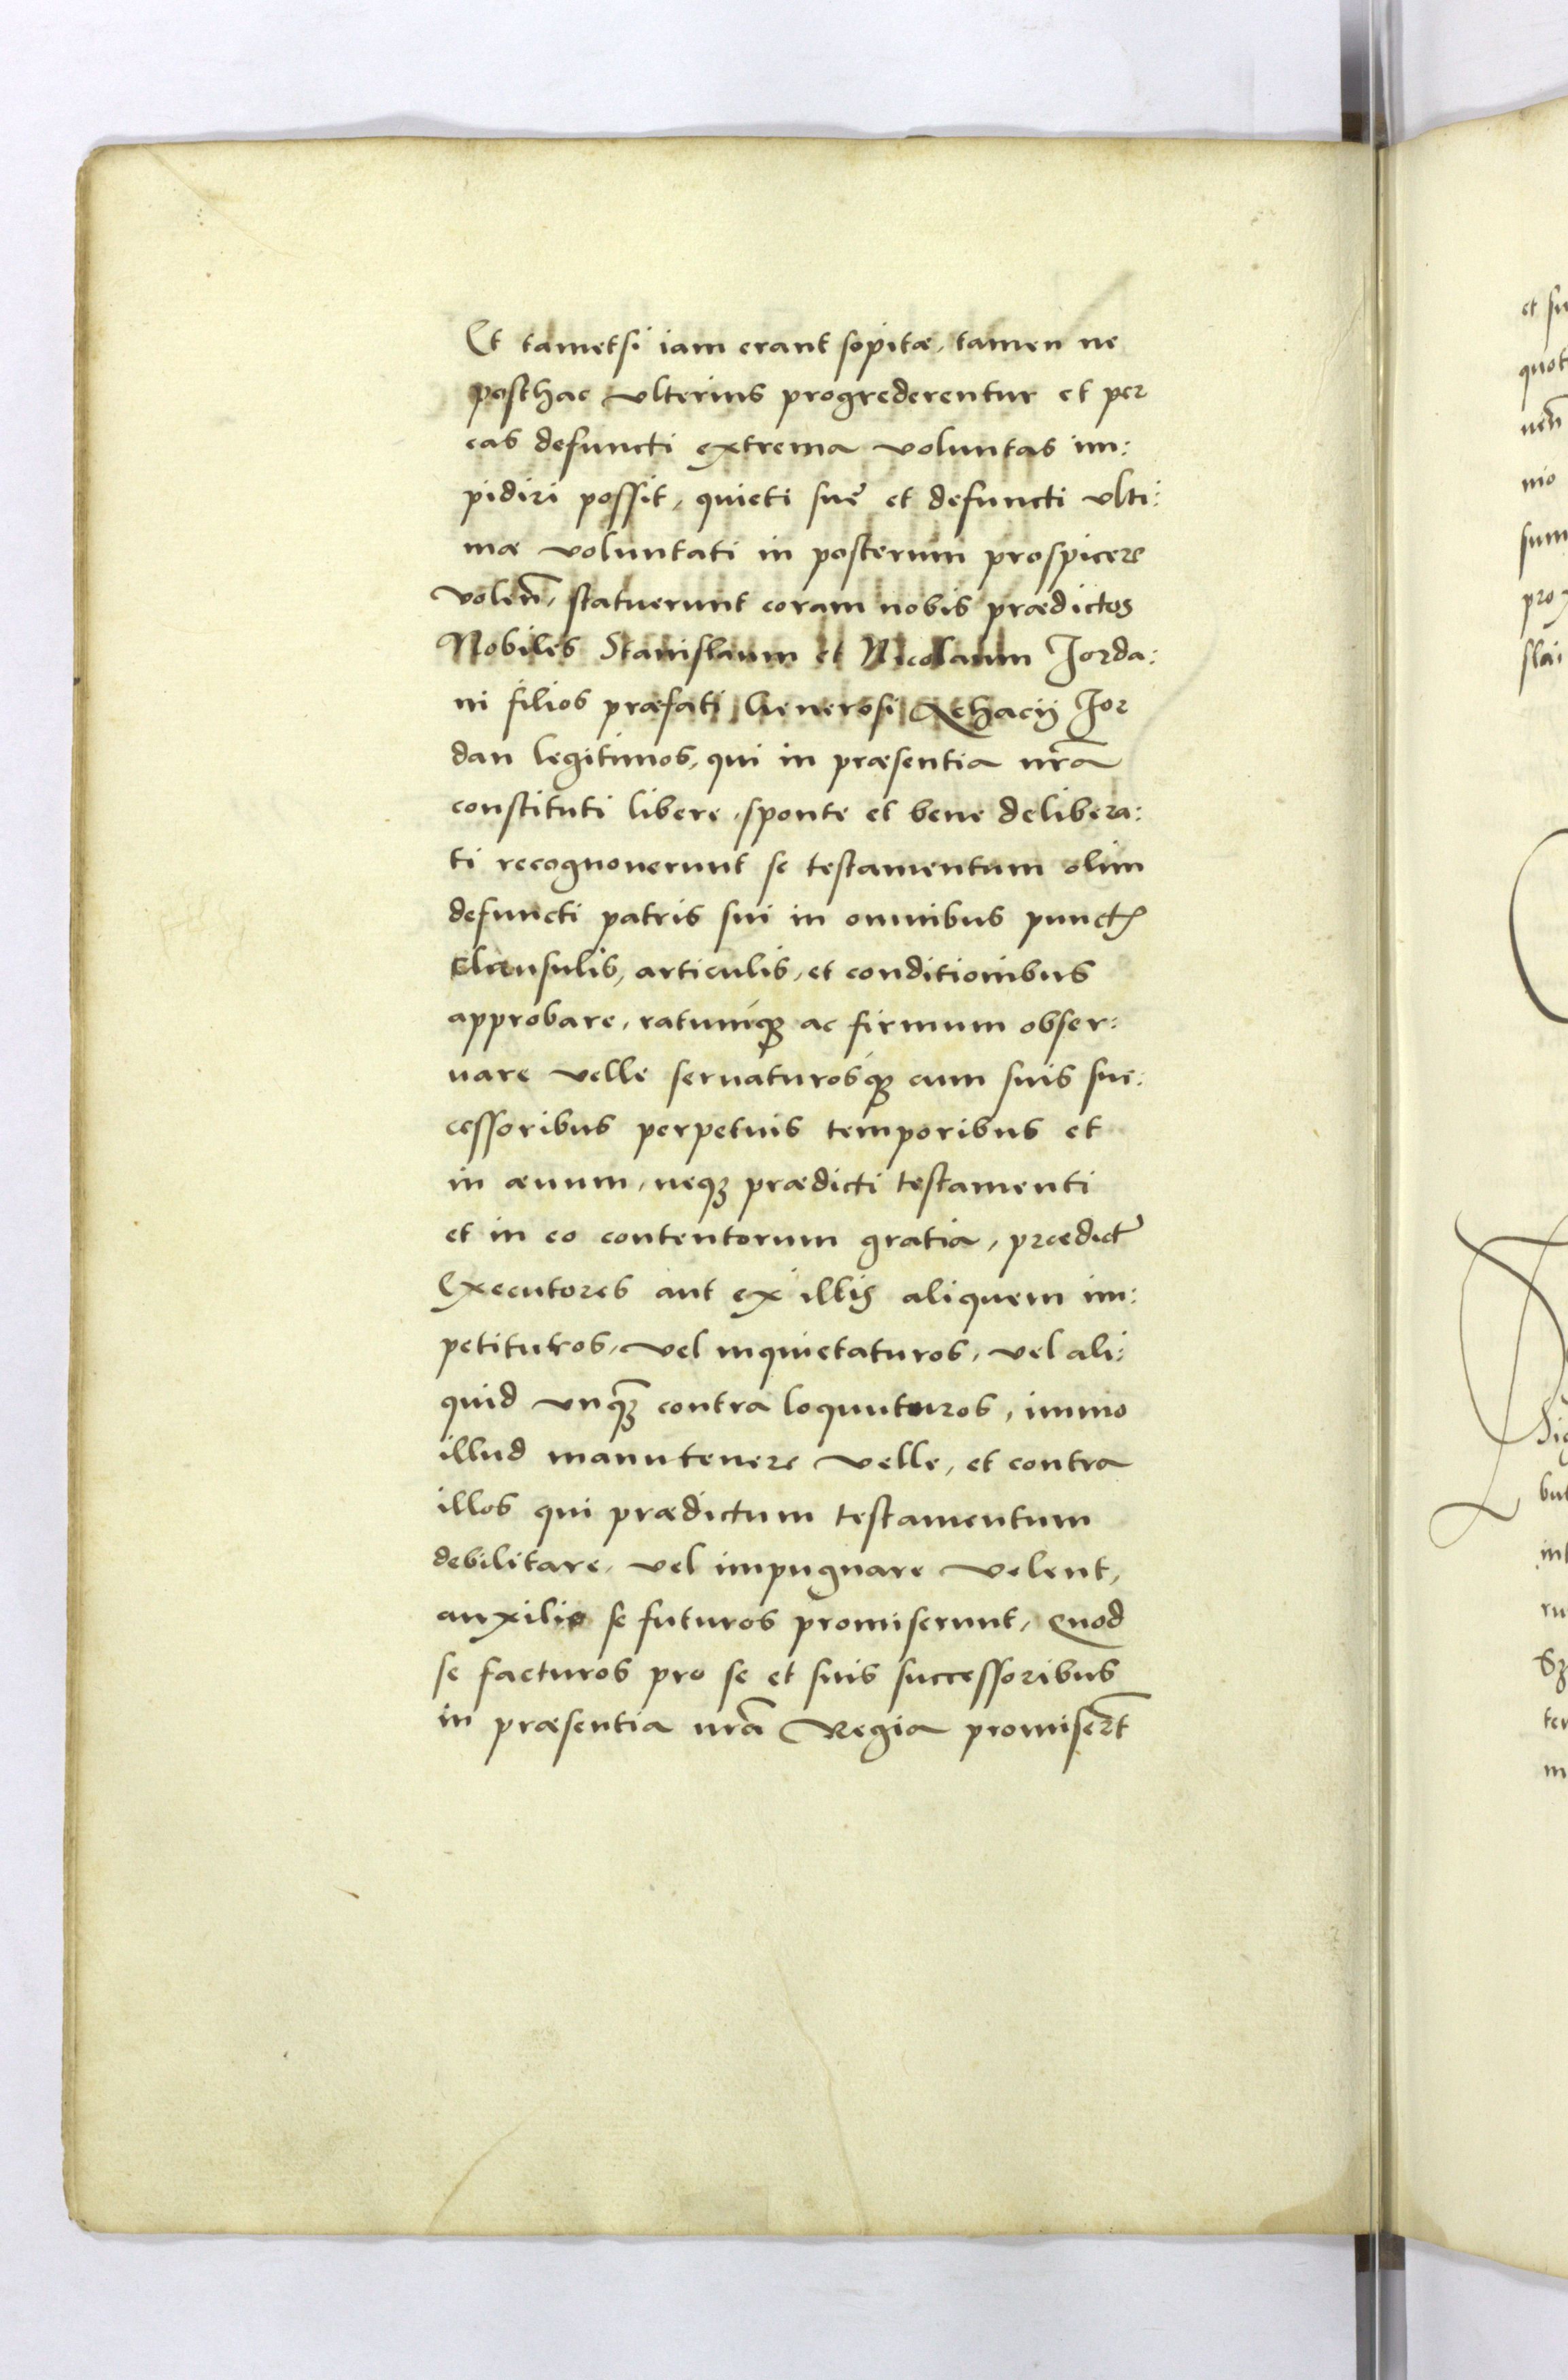 Et tametsi iam erant sopitæ, tamen ne
posthac vlterius progrederentur et per
eas defuncti extrema voluntas im:
pidiri possit, quieti suę et defuncti vlti:
mæ voluntati in posterum prospicere
volen̄, statuerunt coram nobis prædictos
Nobiles Stanislaum et Nicolaum Jorda:
ni filios præfati Generosi Achacij Jor
dan legitimos, qui in præsentia nr̄a
constituti libere, sponte et bene delibera:
ti recognouerunt se testamentum olim
defuncti patris sui in omnibus punctꝭ
clausulis, articulis, et conditionibus
approbare, ratumqꝫ ac firmum obser:
uare velle seruaturosqꝫ cum suis suc:
cessoribus perpetuis temporibus et
in æuum, neqꝫ prædicti testamenti
et in eo contentorum gratia, prædict
Executores aut ex illis aliquem im:
petituros, vel inquietaturos, vel ali:
quid vnqꝫ̄ contra loquuturos, immo
illud manutenere velle, et contra
illos qui prædictum testamentum
debilitare, vel impugnare velent,
auxilio se futuros promiserunt, Quod
se facturos pro se et suis successoribus
in præsentia nr̄a Regia promiser̄t
et su
quot
uen̄
nio
sum
slai
but
int
ru
ter
m